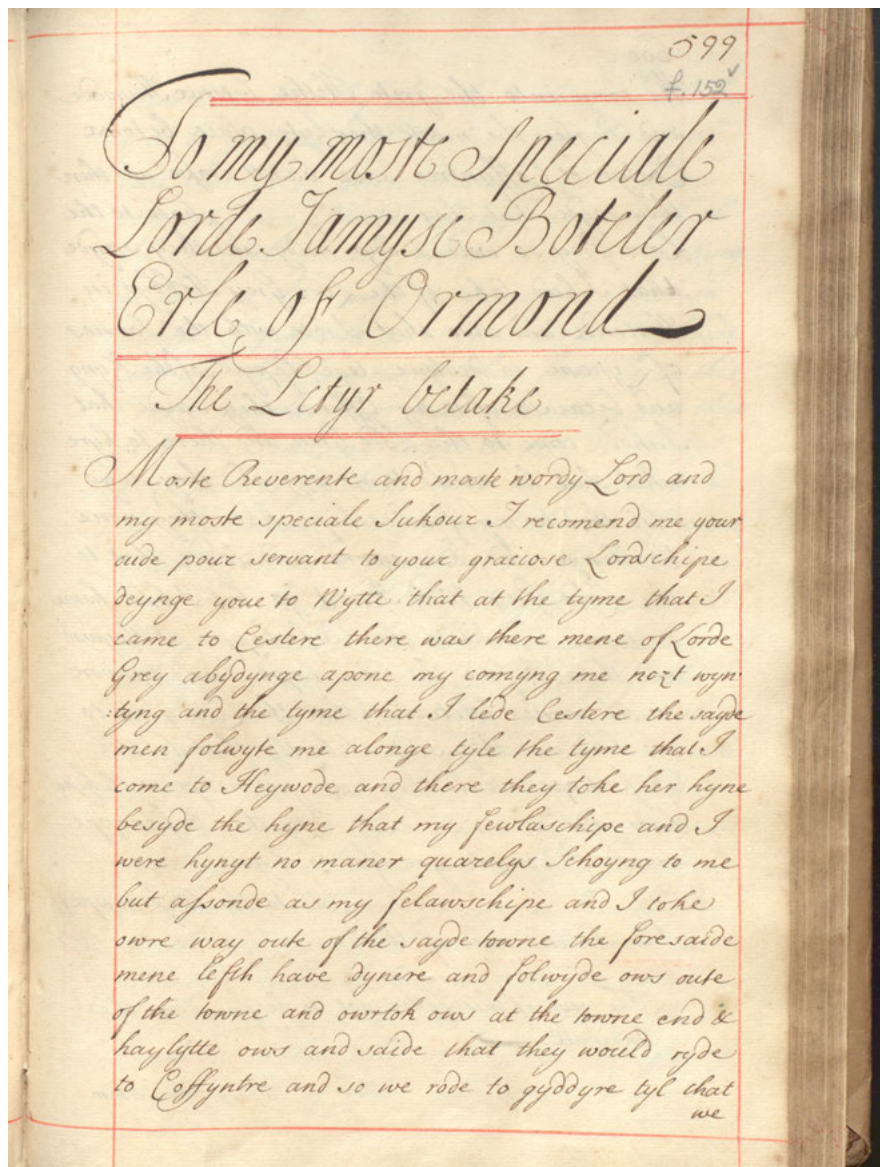 599
f. 152v
To my moste Speciale
Lorde Jamyse Boteler
Erle of Ormond
The Letyr betake
Moste Reverente and moste wordy Lord and
my moste speciale Sukour I recomend me your
oude pour servant to your graciose Lordschipe
deynge youe to Wytte that at the tyme that I
came to Cestere there was there mene of Lorde
Grey abydynge apone my comyng me nozt wyn
:tyng and the tyme that I lede Cestere the sayde
men folwyte me alonge tyle the tyme that I
come to Heywode and there they toke her hyne
besyde the hyne that my fewlaschipe and I
were hynyt no maner quarelys Schoyng to me
but assonde as my felawschipe and I toke
owre way oute of the sayde towne the foresaide
mene lefth have dynere and folwyde ows oute
of the towne and owrtok ows at the towne end &
haylytte ows and saide that they would ryde
to Coffyntre and so we rode to gyddyre tyl that
we